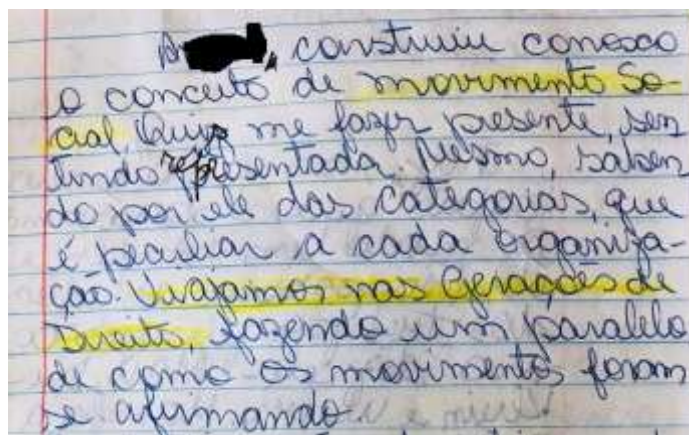 , construiu conosco
o conceito de movimento So-
cial. Quis me fazer presente, sen
tindo representada. Mesmo, saben
do por ele das categorias, que
é peculiar a cada organiza-
ção. Viajamos nas Gerações de
Direito, fazendo um paralelo
de como os movimentos foram
se afirmando.